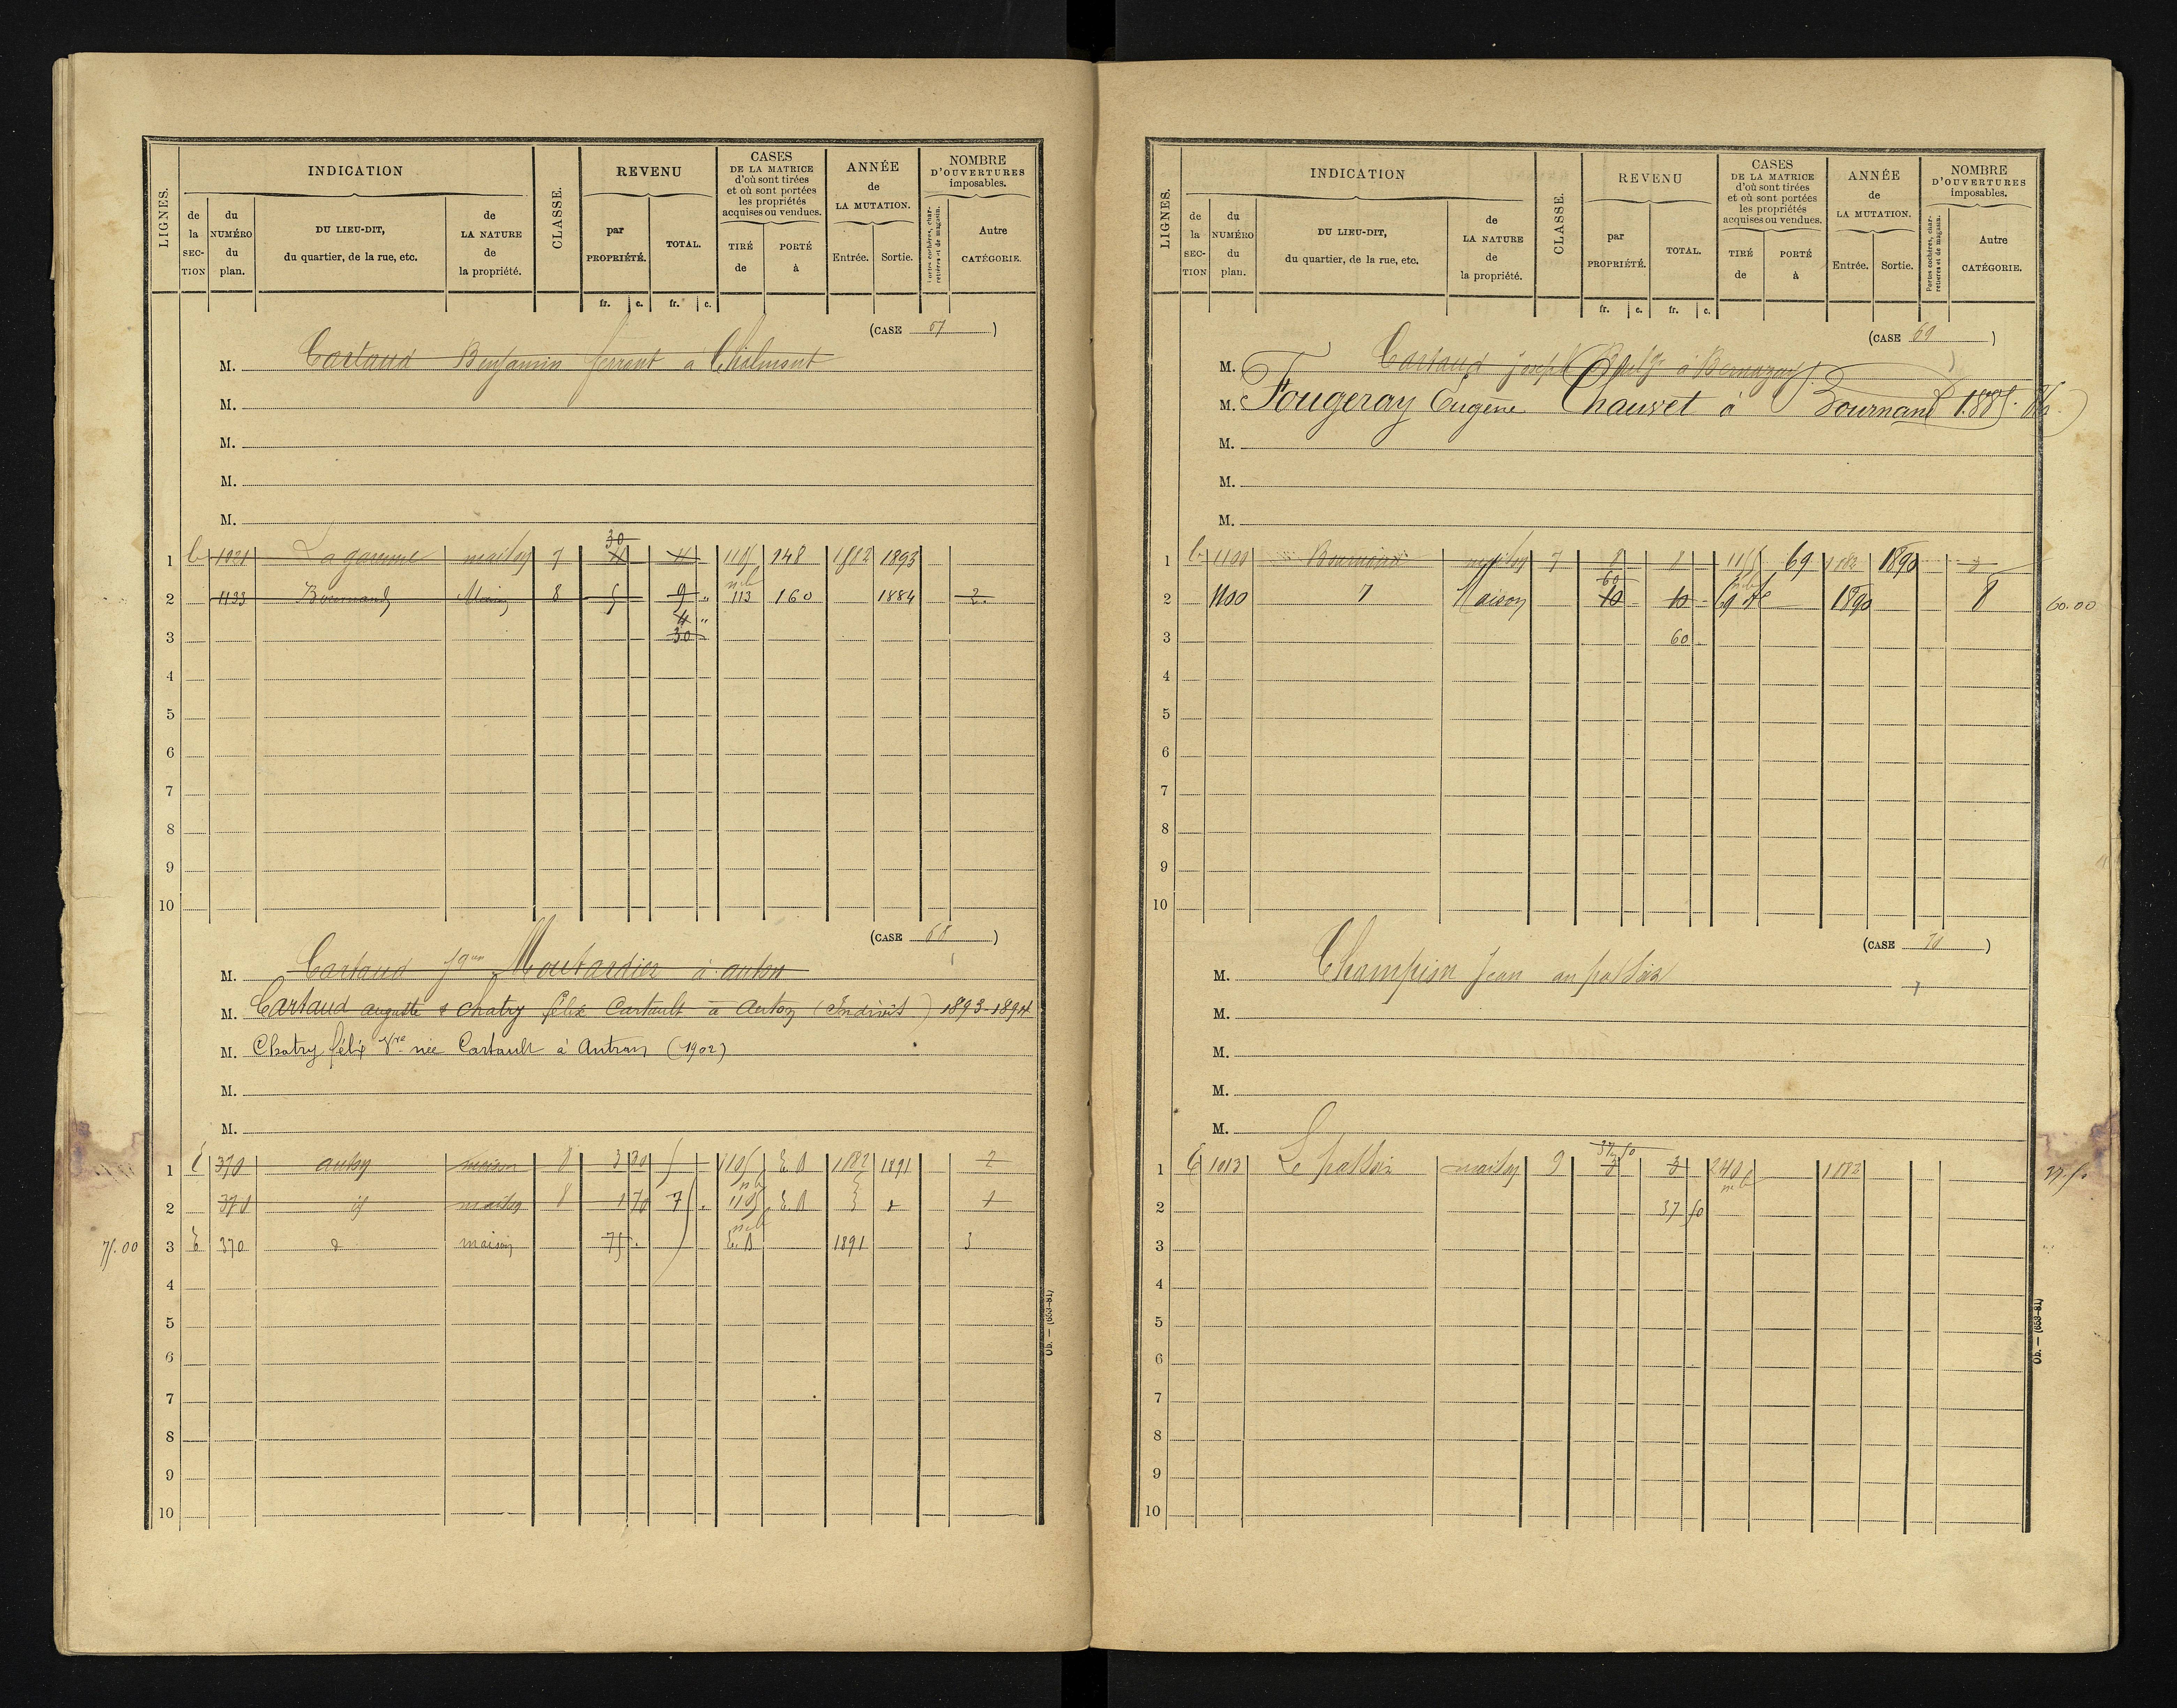 LIGNES.
INDICATION
de la SECTION
du NUMÉRO du plan.
DU LIEU-DIT, du quartier, de la rue, etc.
de LA NATURE de la propriété.
CLASSE.
REVENU
par PROPRIÉTÉ.
TOTAL.
fr. c. fr. c.
CASES DE LA MATRICE d'où sont tirées et où sont portées les propriétés acquises ou vendues.
TIRÉ de
PORTÉ à
ANNÉE de LA MUTATION.
Entrée. Sortie.
NOMBRE D'OUVERTURES imposables.
Portes cochères, charretières et de magasin.
Autre CATÉGORIE.
(CASE 67)
M. Cartaud Benjamin ferrant à
M.
M.
M.
M.
30
1 1021 La garenne maison 7 4 4 1105 148 1882 1893
2 1133 Bournand Maison 8 5 9 " 113 160 1884 2
4 "
3 30
4
5
6
7
8
9
10
(CASE 68)
M. Cartaud Moutardier à
M. Cartaud auguste & Chatry félix Cartault à (Indivis) 1893-1894
M. Chatry félix Vve née Cartault à (1902)
M.
M.
1 370 maison 8 3 30 1105 E.B 1882 1891 2
2 370 id maison 8 1 70 7 1105 E.B 1
75.00 3 370 d maison 75 E.B 1891 3
4
5
6
7
8
9
10
Ob. — (653-81)
LIGNES.
INDICATION
de la SECTION
du NUMÉRO du plan.
DU LIEU-DIT, du quartier, de la rue, etc.
de LA NATURE de la propriété.
CLASSE.
REVENU
par PROPRIÉTÉ.
TOTAL.
fr. c. fr. c.
CASES DE LA MATRICE d'où sont tirées et où sont portées les propriétés acquises ou vendues.
TIRÉ de
PORTÉ à
ANNÉE de LA MUTATION.
Entrée. Sortie.
NOMBRE D'OUVERTURES imposables.
Portes cochères, charretières et de magasin.
Autre CATÉGORIE.
(CASE 69)
M. Cartaud joseph à
M. Fougeray Eugène Chauvet à Bournand
M.
M.
M.
1 1100 maison 7 8 8 69 1882 1890
60
2 1100 Maison 10 10 69 1890 8 60.00
3 60
4
5
6
7
8
9
10
(CASE 70)
M. Champion Jean au
M.
M.
M.
M.
37 50
1 1013 Le maison 9 3 3 240 1882
2 37 50
3
4
5
6
7
8
9
10
Ob. — (653-81)